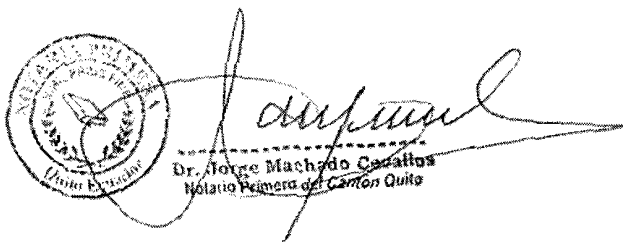 NOTARIA PRIMERA
Quito Ecuador
Dr. Jorge Machado Cevallos
Notario Primero del Cantón Quito